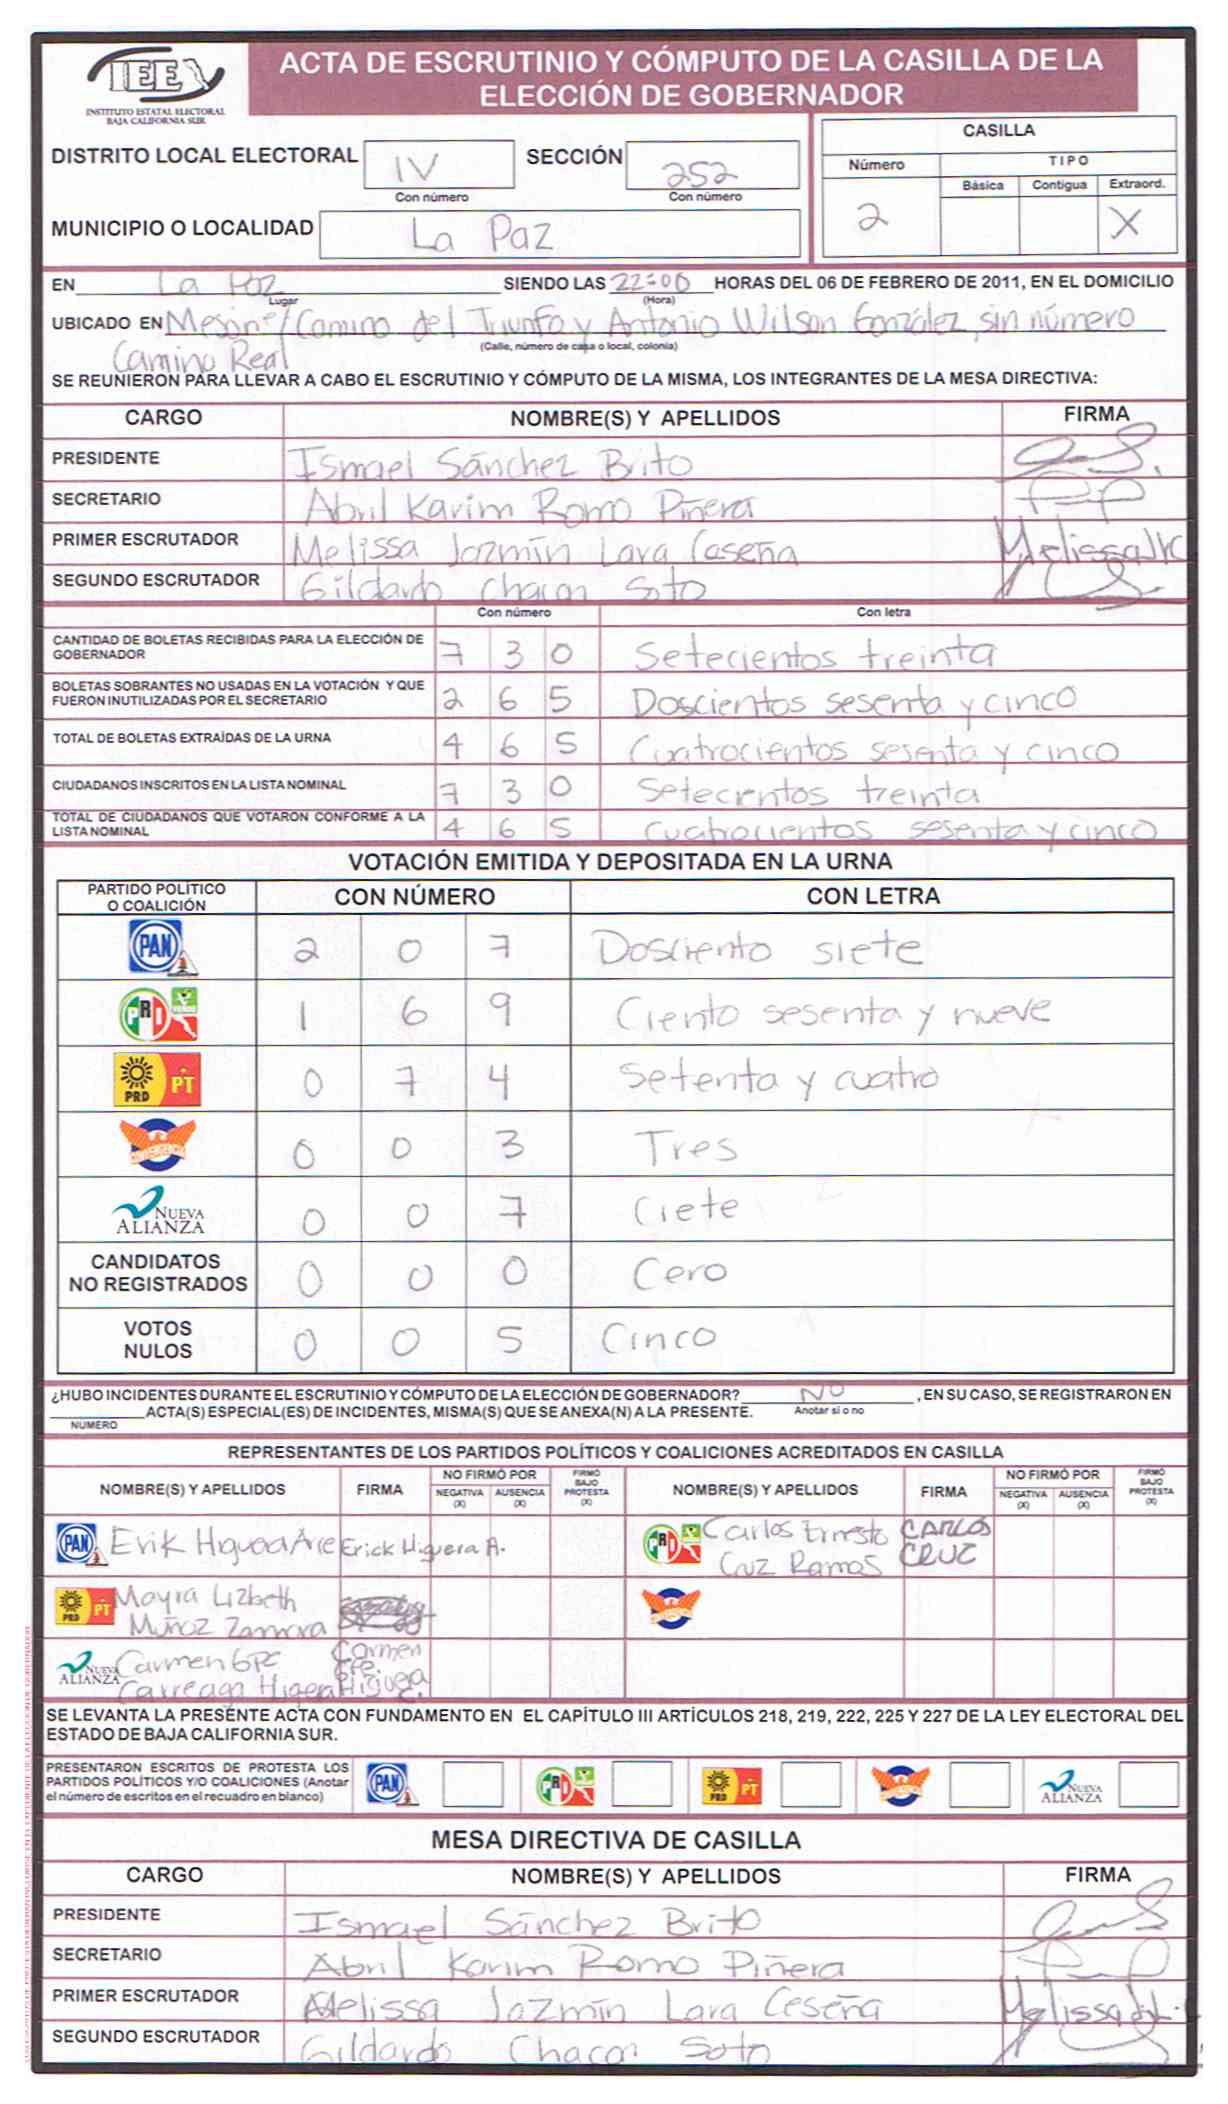 IEEX
INSTITUTO ESTATAL ELECTORAL
BAJA CALIFORNIA SUR
ACTA DE ESCRUTINIO Y CÓMPUTO DE LA CASILLA DE LA
ELECCIÓN DE GOBERNADOR
DISTRITO LOCAL ELECTORAL IV SECCIÓN 252
Con número Con número
MUNICIPIO O LOCALIDAD La Paz
CASILLA
Número TIPO
Básica Contigua Extraord.
2 X
EN La Paz SIENDO LAS 22:00 HORAS DEL 06 DE FEBRERO DE 2011, EN EL DOMICILIO
Lugar (Hora)
UBICADO EN Camino del Triunfo y Antonio Wilson González, sin número
(Calle, número de casa o local, colonia)
Camino Real
SE REUNIERON PARA LLEVAR A CABO EL ESCRUTINIO Y CÓMPUTO DE LA MISMA, LOS INTEGRANTES DE LA MESA DIRECTIVA:
CARGO NOMBRE(S) Y APELLIDOS FIRMA
PRESIDENTE Ismael Sánchez Brito
SECRETARIO Abril Karim Romo Piñera
PRIMER ESCRUTADOR Melissa Jazmín Lara Ceseña
SEGUNDO ESCRUTADOR Gildardo Chacon Soto
Con número Con letra
CANTIDAD DE BOLETAS RECIBIDAS PARA LA ELECCIÓN DE
GOBERNADOR 7 3 0 Setecientos treinta
BOLETAS SOBRANTES NO USADAS EN LA VOTACIÓN Y QUE
FUERON INUTILIZADAS POR EL SECRETARIO 2 6 5 Doscientos sesenta y cinco
TOTAL DE BOLETAS EXTRAÍDAS DE LA URNA 4 6 5 Cuatrocientos sesenta y cinco
CIUDADANOS INSCRITOS EN LA LISTA NOMINAL 7 3 0 Setecientos treinta
TOTAL DE CIUDADANOS QUE VOTARON CONFORME A LA
LISTA NOMINAL 4 6 5 Cuatrocientos sesenta y cinco
VOTACIÓN EMITIDA Y DEPOSITADA EN LA URNA
PARTIDO POLÍTICO
O COALICIÓN CON NÚMERO CON LETRA
PAN 2 0 7 Dosciento siete
PRI VERDE 1 6 9 Ciento sesenta y nueve
PRD PT 0 7 4 Setenta y cuatro
CONVERGENCIA 0 0 3 Tres
NUEVA ALIANZA 0 0 7 Ciete
CANDIDATOS
NO REGISTRADOS 0 0 0 Cero
VOTOS
NULOS 0 0 5 Cinco
¿HUBO INCIDENTES DURANTE EL ESCRUTINIO Y CÓMPUTO DE LA ELECCIÓN DE GOBERNADOR? NO , EN SU CASO, SE REGISTRARON EN
ACTA(S) ESPECIAL(ES) DE INCIDENTES, MISMA(S) QUE SE ANEXA(N) A LA PRESENTE. Anotar sí o no
NUMERO
REPRESENTANTES DE LOS PARTIDOS POLÍTICOS Y COALICIONES ACREDITADOS EN CASILLA
NOMBRE(S) Y APELLIDOS FIRMA NO FIRMÓ POR NEGATIVA (X) AUSENCIA (X) FIRMÓ BAJO PROTESTA (X) NOMBRE(S) Y APELLIDOS FIRMA NO FIRMÓ POR NEGATIVA (X) AUSENCIA (X) FIRMÓ BAJO PROTESTA (X)
PAN Erik Higuera Arce Erick Higuera A. PRI Carlos Ernesto Cruz Ramos CARLOS CRUZ
PRD PT Mayra Lizbeth Muñoz Zamora
NUEVA ALIANZA Carmen Gpe Carreaga Higuera Carmen Gpe. Higuera C.
SE LEVANTA LA PRESENTE ACTA CON FUNDAMENTO EN EL CAPÍTULO III ARTÍCULOS 218, 219, 222, 225 Y 227 DE LA LEY ELECTORAL DEL
ESTADO DE BAJA CALIFORNIA SUR.
PRESENTARON ESCRITOS DE PROTESTA LOS
PARTIDOS POLÍTICOS Y/O COALICIONES (Anotar
el número de escritos en el recuadro en blanco) PAN PRI PRD PT NUEVA ALIANZA
MESA DIRECTIVA DE CASILLA
CARGO NOMBRE(S) Y APELLIDOS FIRMA
PRESIDENTE Ismael Sánchez Brito
SECRETARIO Abril Karim Romo Piñera
PRIMER ESCRUTADOR Melissa Jazmín Lara Ceseña
SEGUNDO ESCRUTADOR Gildardo Chacon Soto